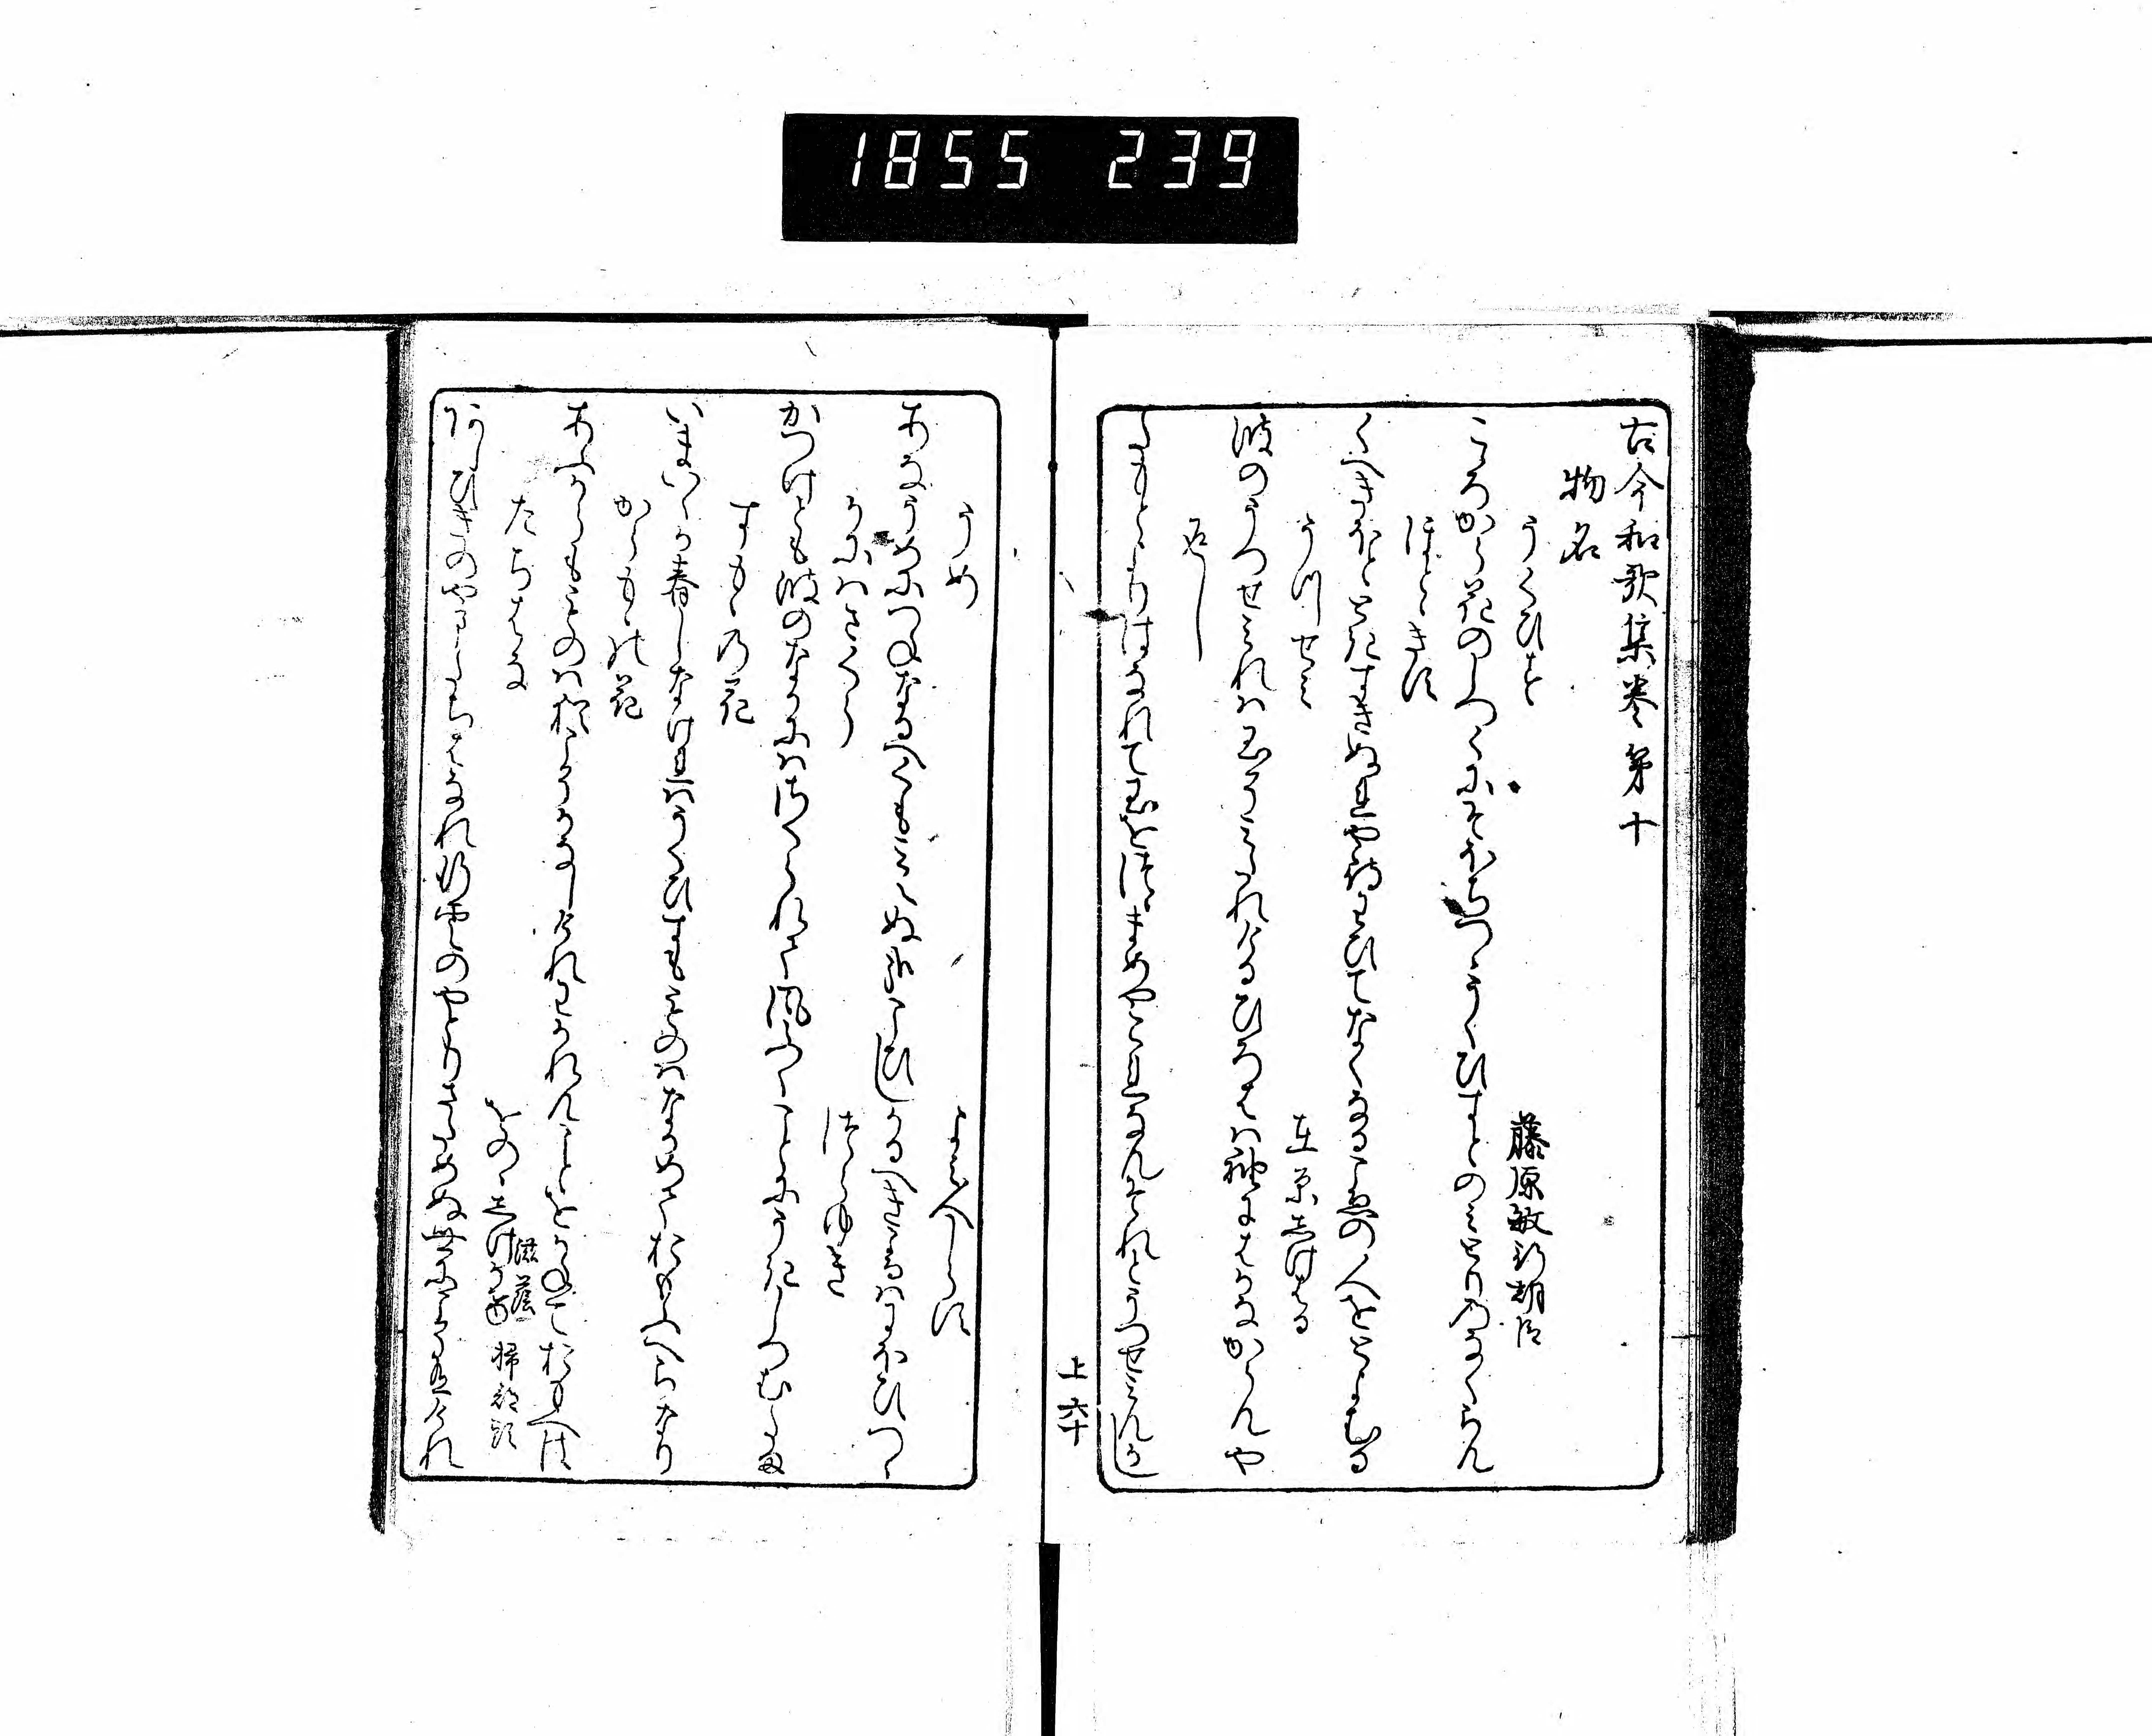 1855 239
古今和歌集巻第十
物名
うくひす
藤原敏行朝臣
こゝろから花のしつくにそほちつゝうくひすとのみ鳥のなくらん
ほとゝきす
くへきほとときすきぬれや待わひてなくなるこゑの人をとよむる
うつせみ
在原しけはる
波のうつせみれは玉そみたれけるひろはゝ袖にはかなからんや
返し
たもとよりはなれて玉をつゝまめやこれなんそれとうつせみんかし
上六十
うめ
よみ人しらす
あなうめにつねなるへくも見えぬ哉こひしかるへきかはにほひつゝ
かにはさくら
つらゆき
かつけとも波のなかにはさくられて風ふくことにうきしつむ玉
すもゝの花
いまいくか春しなけれはうくひすもものはなかめておもふへらなり
からもゝの花
あふからもものは猶こそかなしけれわかれんことをかねておもへは
たちはな
をのゝしけかけ
滋蔭 掃部頭
あしひきのやまたちはなれ行雲のやとりさためぬ世にこそ有けれ